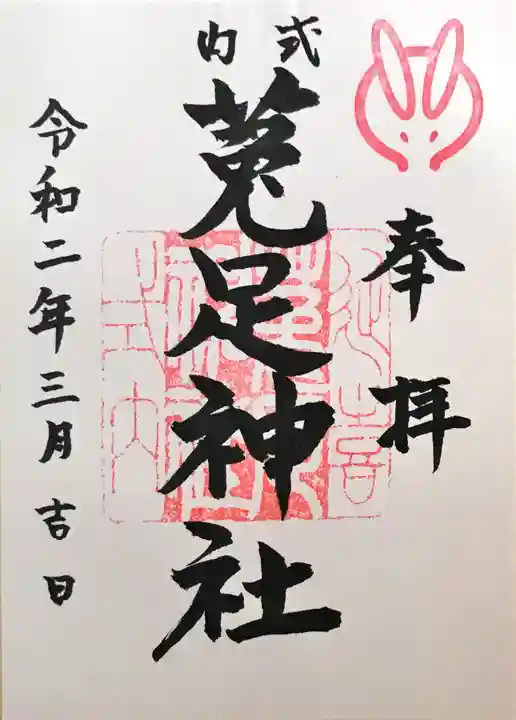 奉拝
式内
菟足神社
令和二年三月吉日
延喜
式内